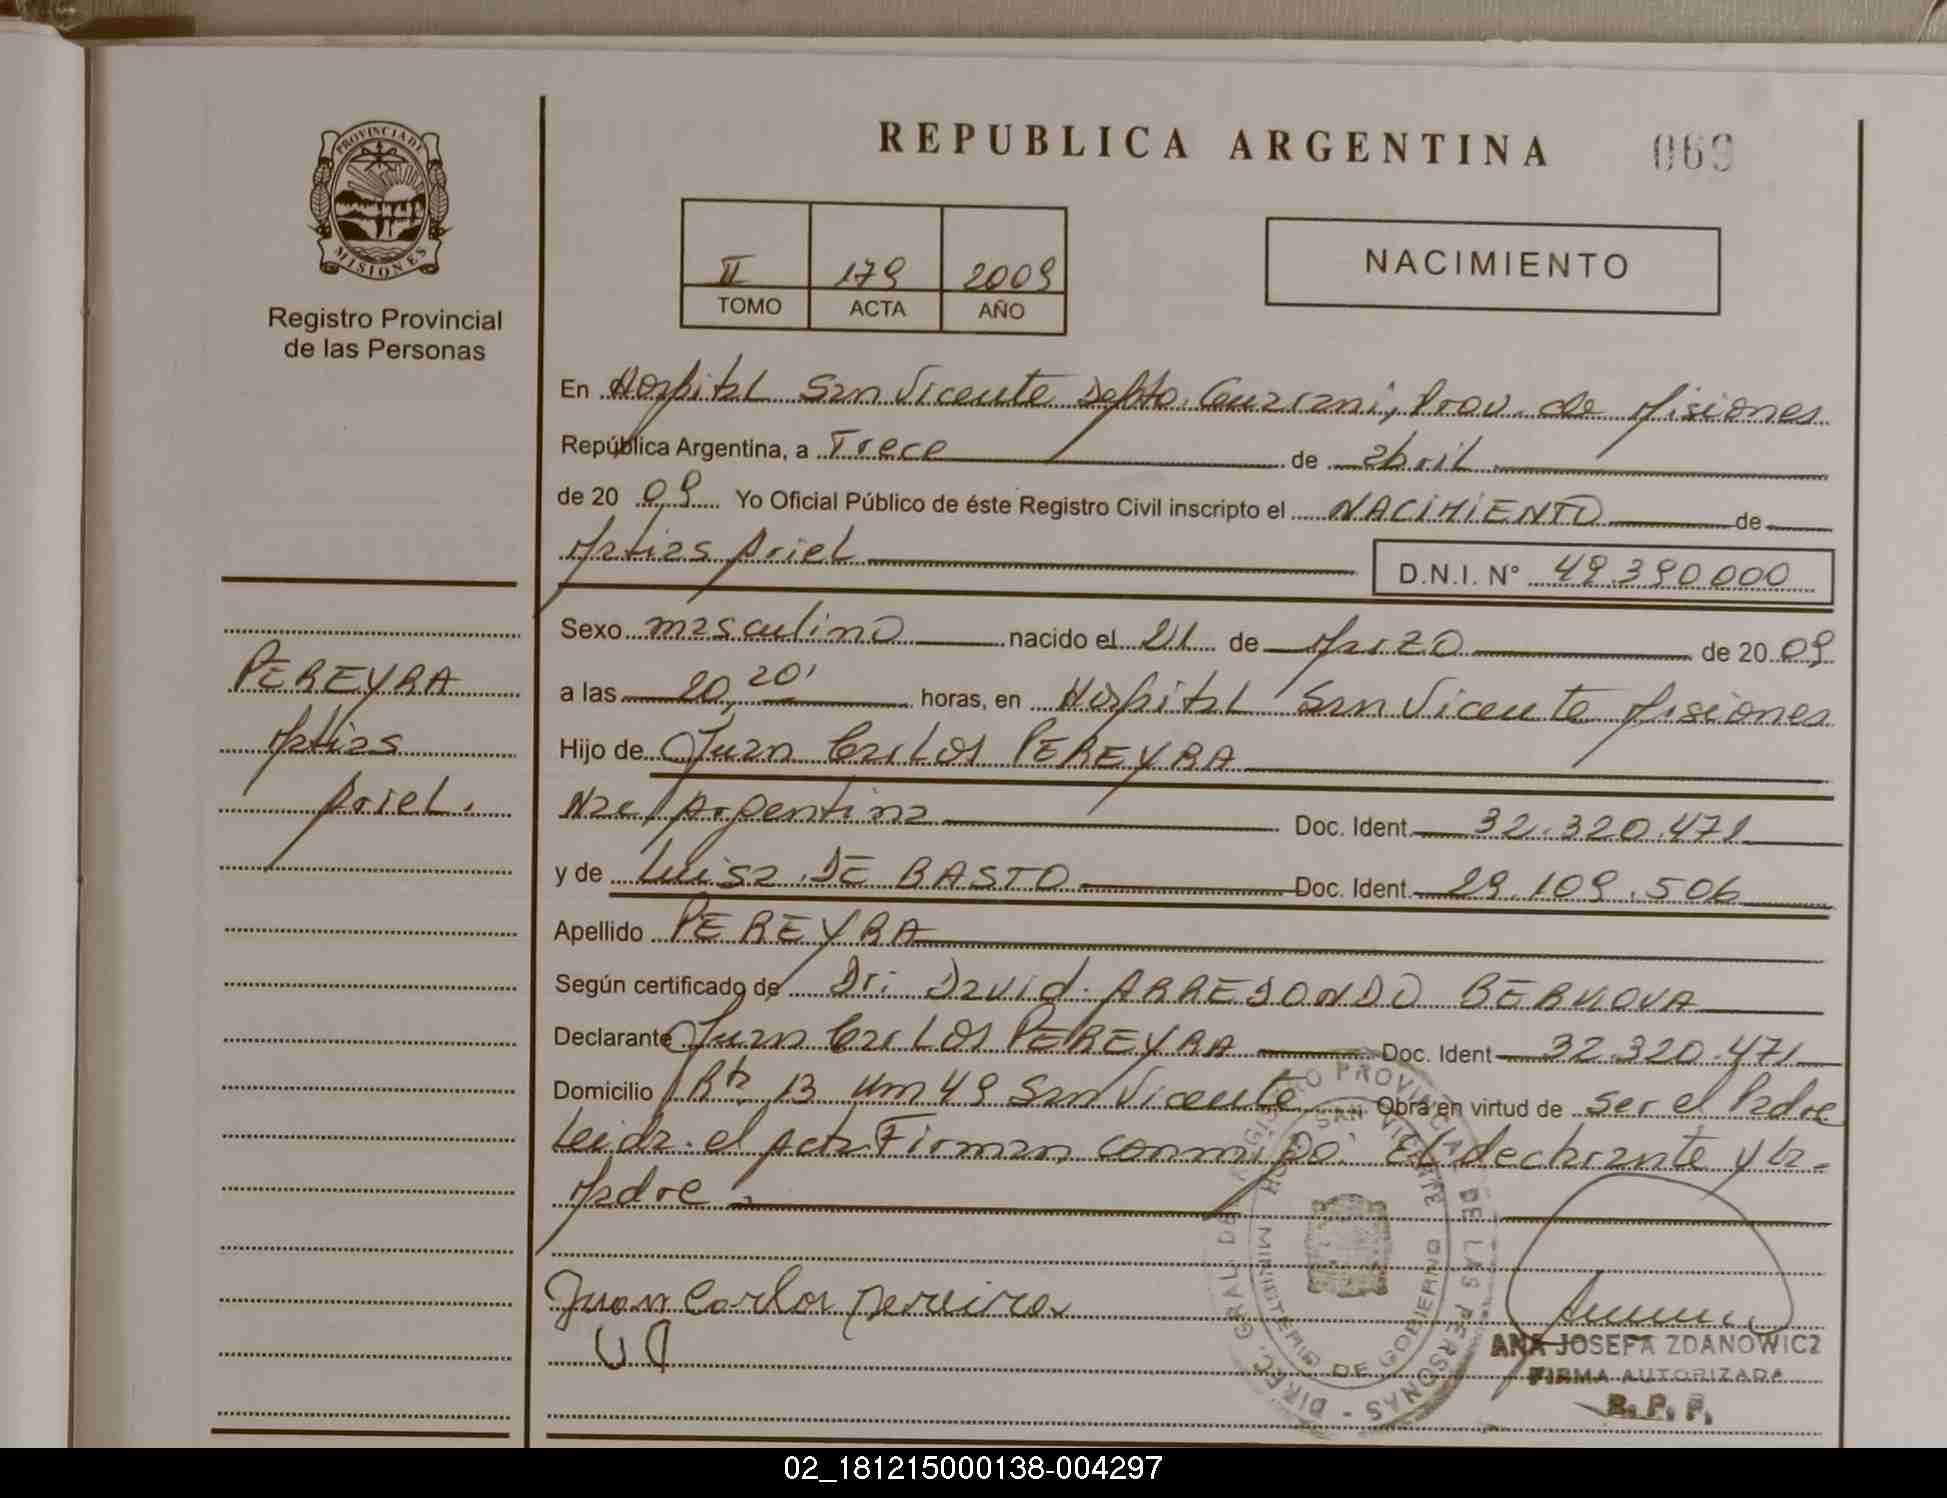 PROVINCIA DE
MISIONES
Registro Provincial
de las Personas
REPUBLICA ARGENTINA 069
II 179 2009
TOMO ACTA AÑO
NACIMIENTO
En Hospital San Vicente Depto. Guarani, Prov. de Misiones
República Argentina, a Trece de abril
de 20 09 Yo Oficial Público de éste Registro Civil inscripto el NACIMIENTO de
Matias Ariel D.N.I. N° 49.390.000
Sexo masculino nacido el 21 de Marzo de 20 09
a las 20,20' horas, en Hospital San Vicente Misiones
Hijo de Juan Carlos PEREYRA
Nac/ Argentina Doc. Ident. 32.320.471
y de Luisa DE BASTO Doc. Ident. 29.109.506
Apellido PEREYRA
Según certificado de Dr: David ARREDONDO
Declarante Juan Carlos PEREYRA Doc. Ident 32.320.471
Domicilio Rta 13 Km 49 San Vicente Obra en virtud de ser el Padre
Leida el acta Firman conmigo: El declarante y la
Madre
PEREYRA
Matias
Ariel.
Juan Carlos Pereira
DIREC. GRAL DEL REGISTRO PROVINCIAL DE LAS PERSONAS -
SAN VICENTE
MINISTERIO DE GOBIERNO
ANA JOSEFA ZDANOWICZ
FIRMA AUTORIZADA
R. P. P.
02_181215000138-004297